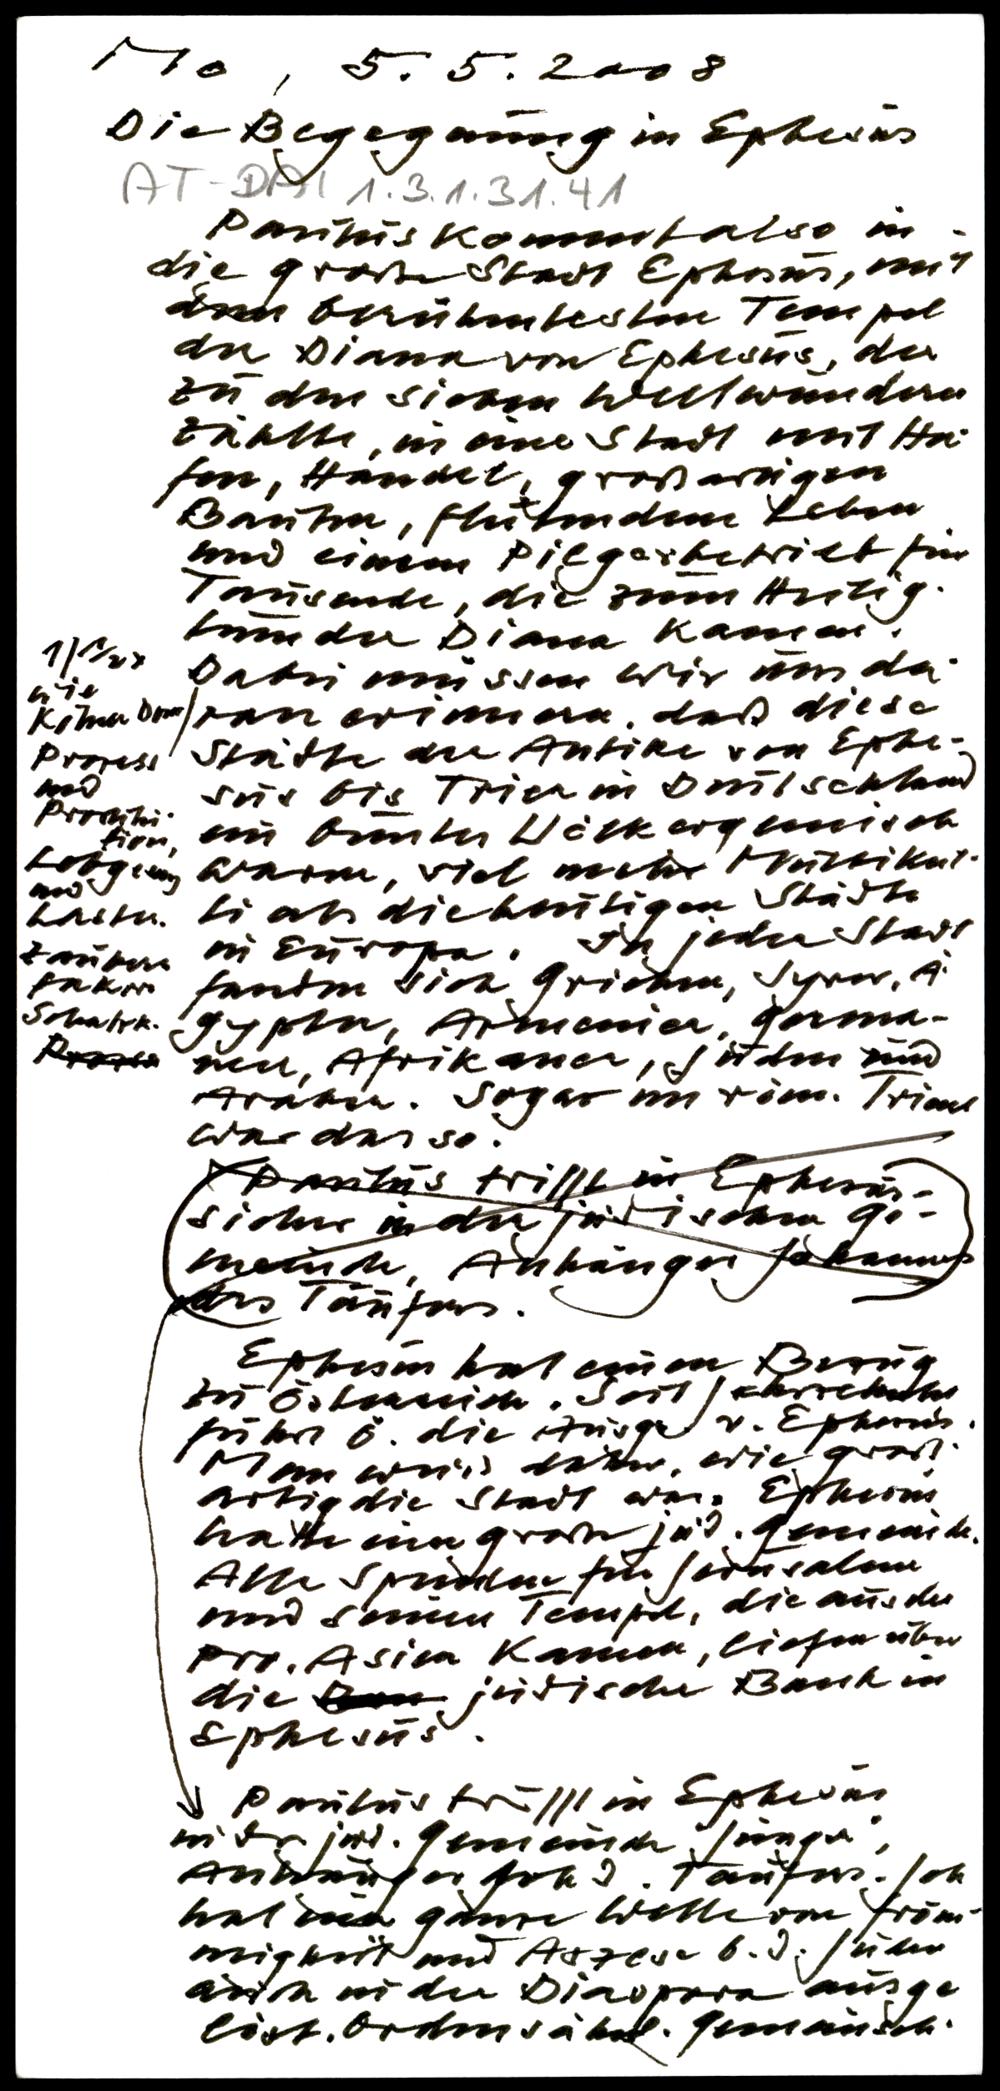 Mo, 5.5.2008
Die Begegnung in Ephesus
AT-DAI 1.3.1.31.41
Paulus kommt also in
die große Stadt Ephesus, mit
dem berühmtesten Tempel
der Diana von Ephesus, der
zu den sieben Weltwundern
zählte, in eine Stadt mit Ha-
fen, Handel, großartigen
Bauten, flutendem Leben
und einem Pilgerbetrieb für
Tausende, die zum Heilig-
tum der Diana kamen.
Dabei müssen wir uns da-
ran erinnern, daß diese
Städte der Antike von Ephe-
sus bis Trier in Deutschland
ein buntes Völkergemisch
waren, viel mehr Multikul-
ti als die heutigen Städte
in Europa. In jeder Stadt
fanden sich Griechen, Syrer, Ä-
gypter, Armenier, Germa-
nen, Afrikaner, Juden und
Araber. Sogar im röm. Trier
war das so.
1)
wie
Kölner Dom
Prozess
und
Prostitu-
tion,
Lobgesang
und
Laster.
Zauberer
Fakire
Scharl.
Paulus trifft in Ephesus-
sicher in der jüdischen Ge-
meinde, Anhänger Johannes
des Täufers.
Ephesus hat einen Bezug
zu Österreich. Seit Jahrzehnten
führt Ö. die Ausgr. v. Ephesus.
Man weiß daher, wie groß-
artig die Stadt war. Ephesus
hatte eine große jüd. Gemeinde.
Alle Spenden für Jerusalem
und seinen Tempel, die aus der
Prov. Asien kamen, liefen über
die jüdische Bank in
Ephesus.
Paulus trifft in Ephesus
in der jüd. Gemeinde "Jünger",
Anhänger Joh d. Täufers. Joh
hat eine ganze Welle von Fröm-
migkeit und Aszese b. d. Juden
auch in der Diaspora ausge-
löst. Ordensähnl. Gemeinsch.